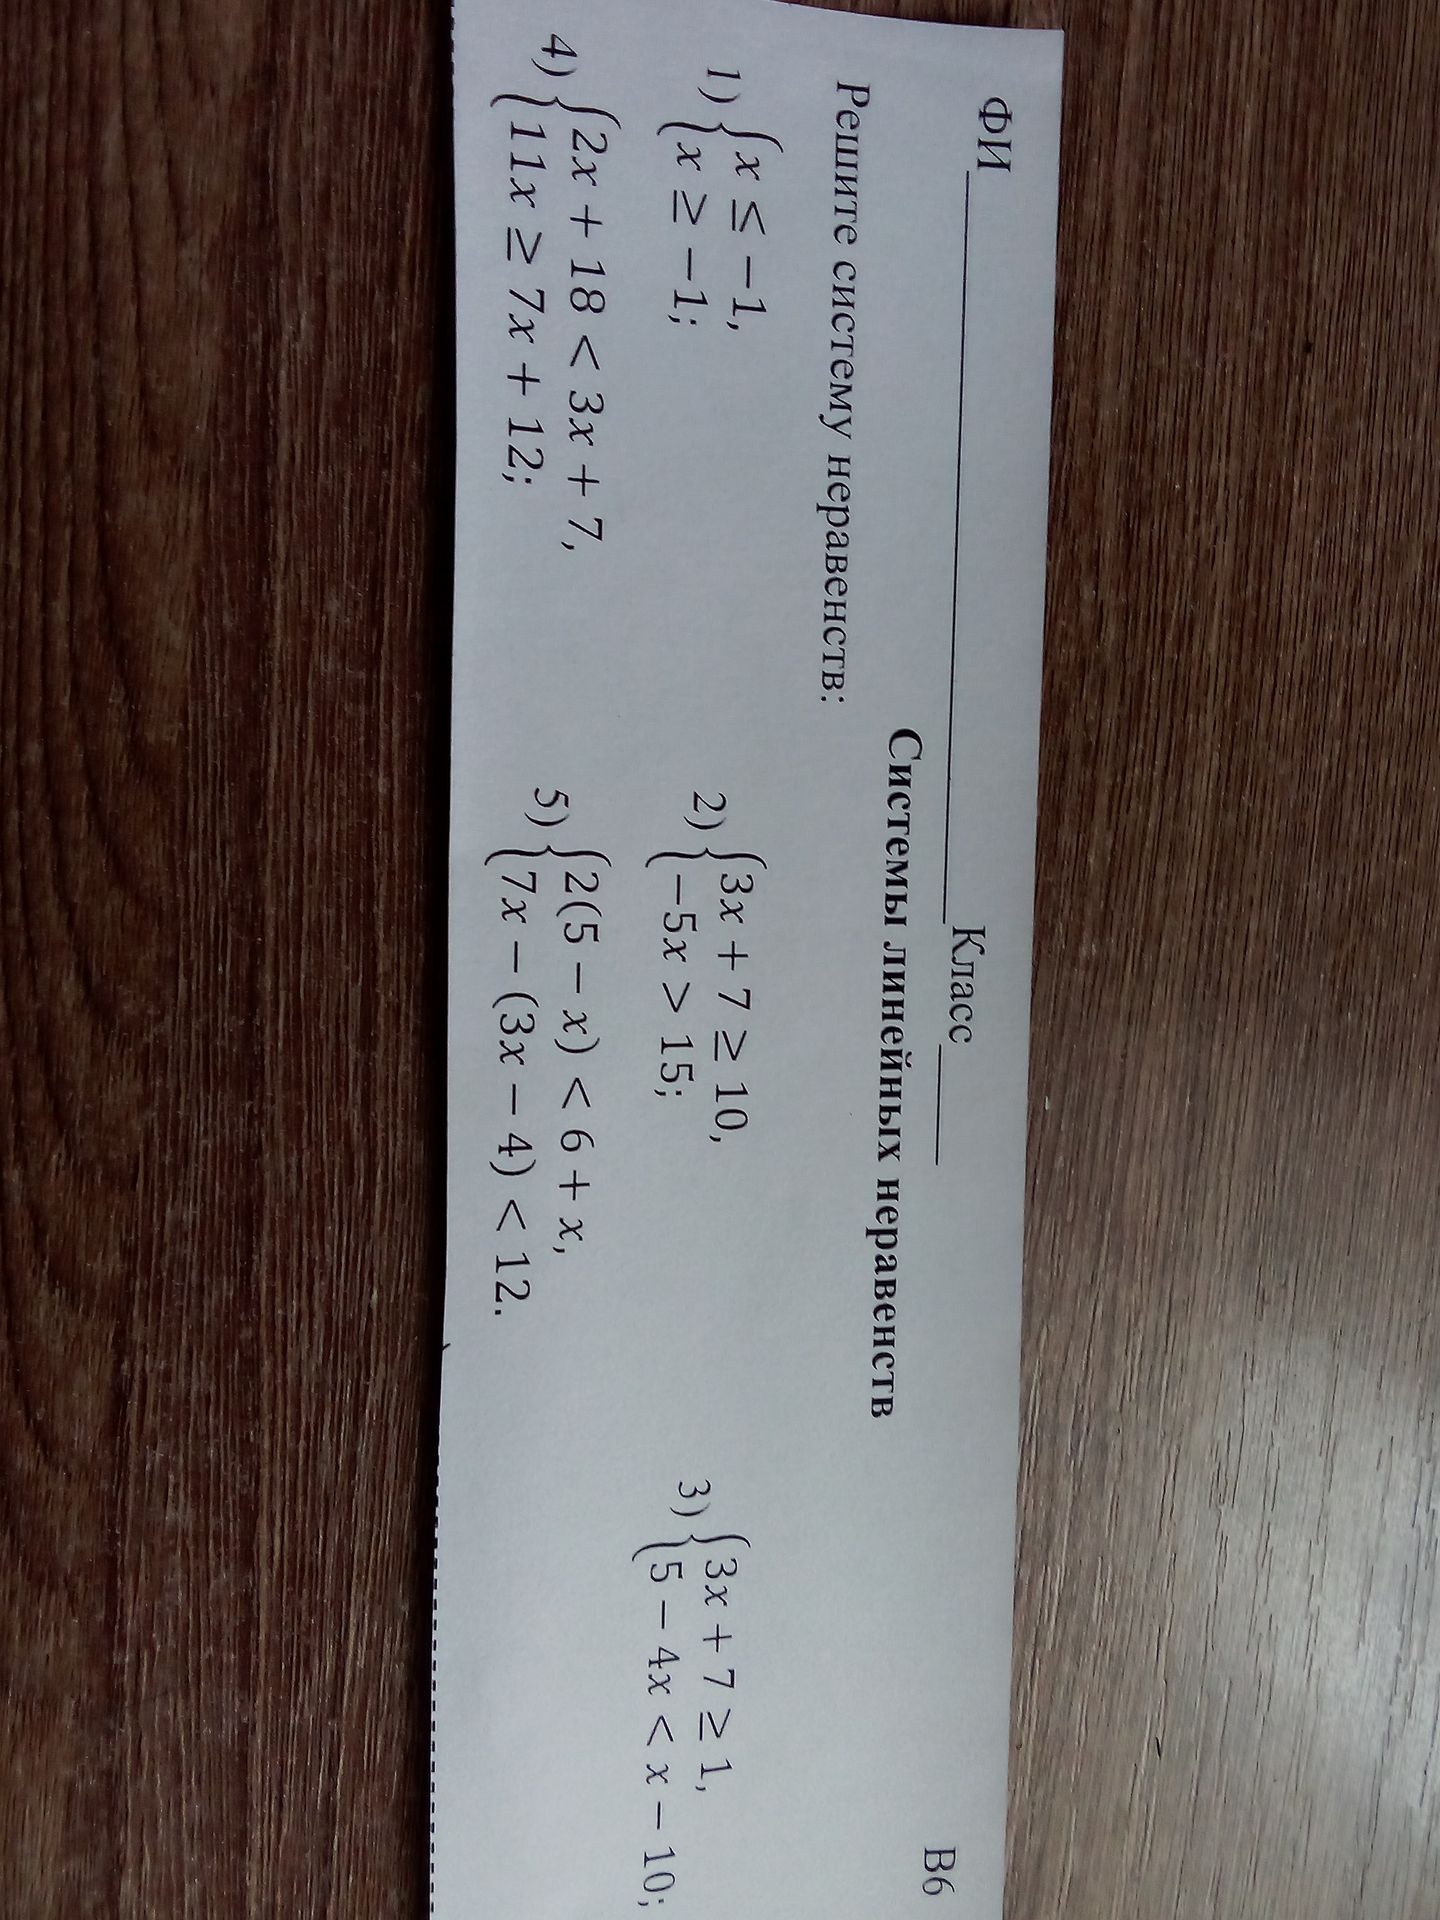 ФИ____________________Класс_____ В6
Системы линейных неравенств
Решите систему неравенств:
1) {x ≤ −1, 2) {3x + 7 ≥ 10, 3) {3x + 7 ≥ 1,
x ≥ −1; −5x > 15; 5 − 4x < x − 10;
4) {2x + 18 < 3x + 7, 5) {2(5 − x) < 6 + x,
11x ≥ 7x + 12; 7x − (3x − 4) < 12.